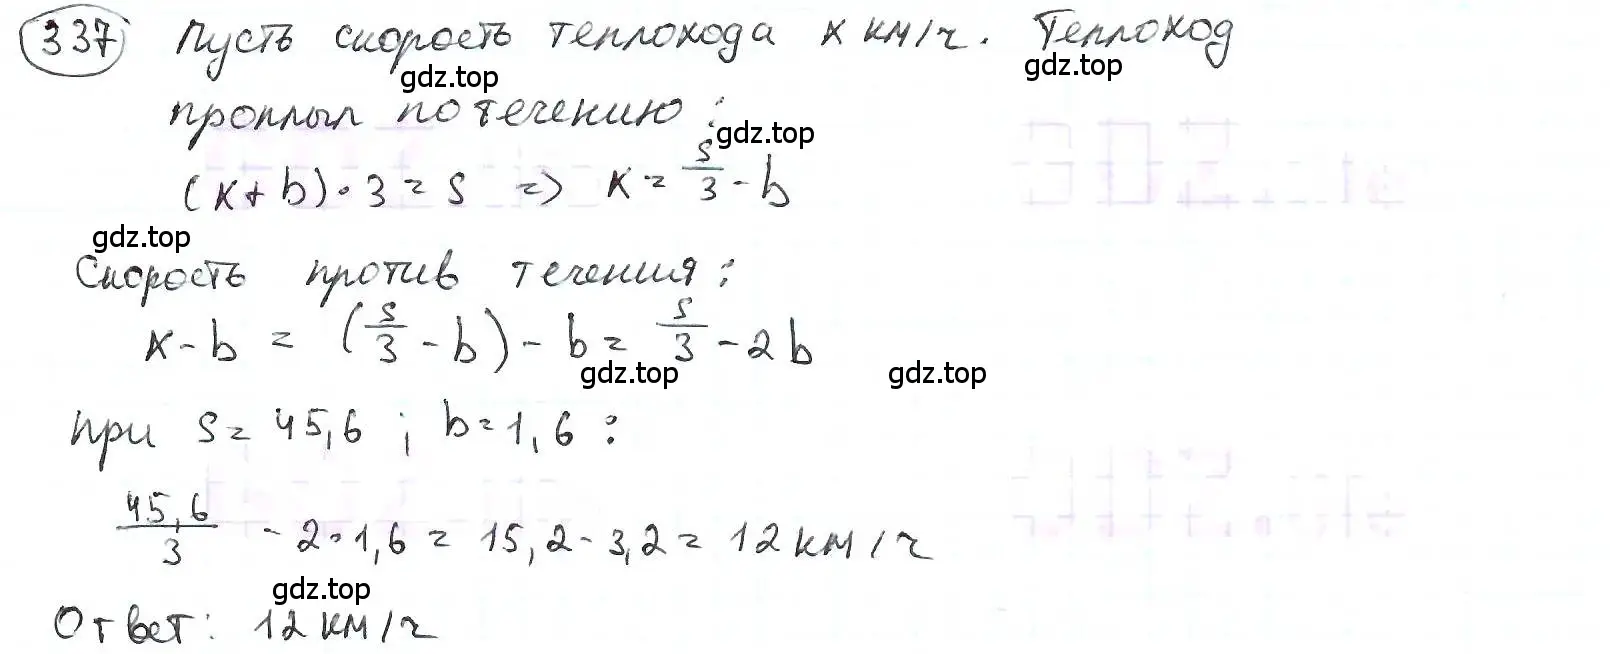 337 Пусть скорость теплохода x км/ч. Теплоход
gdz.top gdz.top
проплыл по течению:
gdz.top
(x+b)·3=s => x= s/3 - b
gdz.top
Скорость против течения:
x-b = (s/3 - b) - b = s/3 - 2b
gdz.top gdz.top
при s=45,6; b=1,6:
45,6/3 - 2·1,6 = 15,2-3,2 = 12 км/ч
gdz.top
Ответ: 12 км/ч